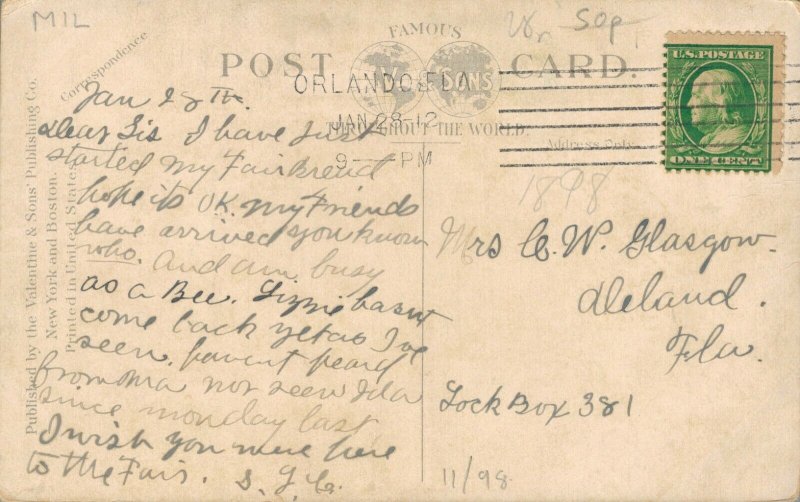 MIL
50¢
FAMOUS
POST CARD.
VALENTINE & SONS
THROUGHOUT THE WORLD.
Correspondence
Address Only.
Published by the Valentine & Sons' Publishing Co.
New York and Boston.
Printed in United States.
ORLANDO, FLA
JAN 28 12
9 — PM
U.S. POSTAGE
ONE CENT
1898
Jan 28th.
Dear Sis I have just
started my Fair Bread
hope its OK. my Friends
have arrived you know
who. And am busy
as a Bee. Lizzie hasnt
come back yet as I've
seen. havent heard
from Ma nor seen Ida
since monday last
I wish you were here
to the Fair.
Mrs C. W. Glasgow.
Deland.
Fla.
Lock Box 381
11/98